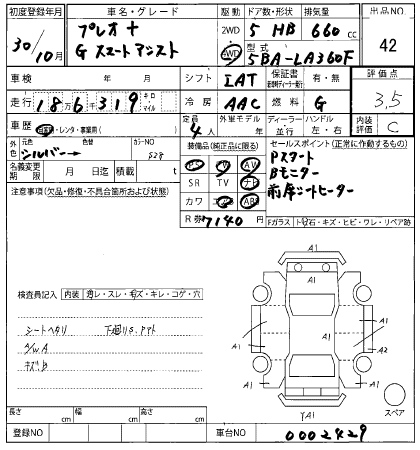 初度登録年月 車名・グレード 駆動 ドア数・形状 排気量 出品NO
30/10月 プレオ+ 2WD 5 HB 660 cc 42
G スマートアシスト 4WD 型式 5BA-LA360F
車検 年 月 シフト IAT 保証書 有・無 評価点
走行 186千319 キロ マイル 冷房 AAC 燃料 G 3.5
車歴 自家・レンタ・事業用( ) 定員 4人 外車モデル 年 ディーラー 並行 ハンドル 左・右 内装評価 C
外色 元色 シルバー 色替 カラーNO S28 装備品(純正品に限る) セールスポイント(正常に作動するもの)
名義変更期限 月 日迄 積載 t PS PW AV Pスタート
SR TV ナビ Bモニター
注意事項(欠品・修復・不具合箇所および状態) カワ エアB ABS 前席シートヒーター
R券 7140円 Fガラス トビ石・キズ・ヒビ・ワレ・リペア跡
A1
検査員記入 内装 汚レ・スレ・キズ・キレ・コゲ・穴 A1 A1
シートヘタリ 下廻りS.
A/W A A1 A1 A1 A2
キズB
A1 A1
YA1 スペア
長さ cm 幅 cm 高さ cm
登録NO 車台NO 0002429